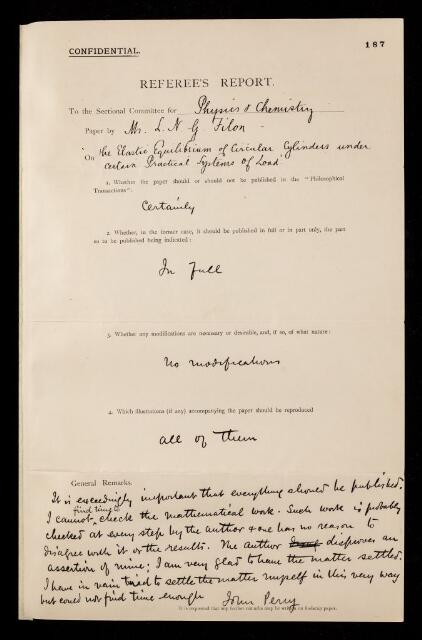 187
CONFIDENTIAL.
REFEREE'S REPORT.
To the Sectional Committee for Physics & Chemistry
Paper by Mr. L. N. G. Filon
On "The Elastic Equilibrium of Circular Cylinders under
certain Practical Systems of Load"
1. Whether the paper should or should not be published in the "Philosophical
Transactions":
Certainly
2. Whether, in the former case, it should be published in full or in part only, the part
so to be published being indicated:
In full
3. Whether any modifications are necessary or desirable, and, if so, of what nature:
No modifications
4. Which illustrations (if any) accompanying the paper should be reproduced
all of them
General Remarks.
It is exceedingly important that everything should be published.
find time to
I cannot check the mathematical work. Such work is probably
checked at every step by the author & one has no reason to
disagree with it or the results. The author disproves an
assertion of mine; I am very glad to have the matter settled.
I have in vain tried to settle the matter myself in this very way
but could not find time enough John Perry
It is requested that any further remarks may be written on foolscap paper.